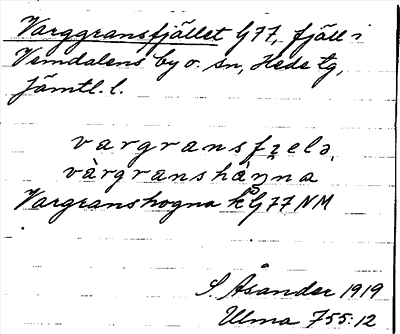 Varggransfjället G77, fjäll i
Vemdalens by o. sn, Hede tg,
Jämtl. l.
vargransfzelə
vàrgranshàŋna
Vargranshogna k G77 NM
S. Åsander 1919
Ulma 755:12